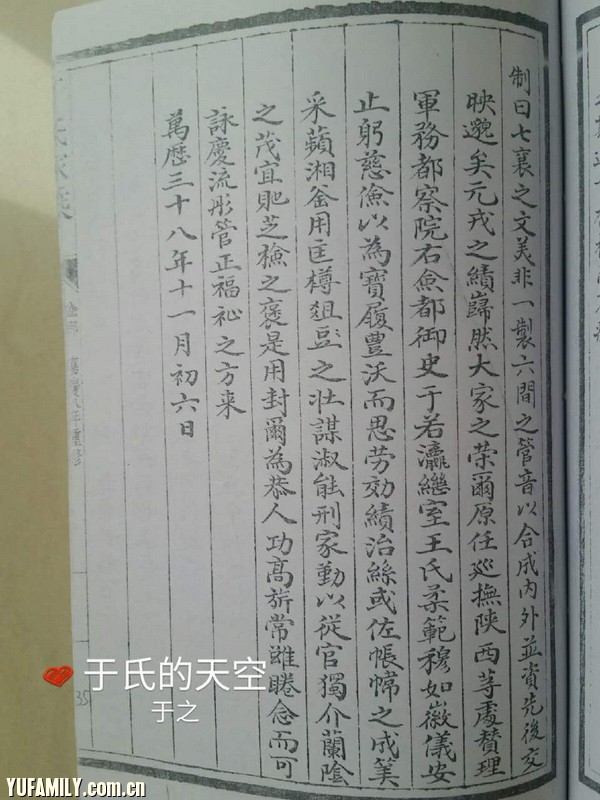 制曰七襄之文美非一製六間之管音以合成内外並資先後交
映邈矣元戎之績巋然大家之荣爾原任廵撫陕西等處賛理
軍務都察院右僉都御史于若瀛繼室王氏柔範穆如徽儀安
止躬慈儉以為寶履豊沃而思劳効績治絲或佐帳幃之成筭
采蘋湘釜用匡樽俎之壮謀淑能刑家勤以從官獨介蘭隂
之茂宜貤芝檢之褒是用封爾為恭人功高旂常雖睠念而可
詠慶流彤管正福祉之方来
萬歴三十八年十一月初六日
氏家乗
嘉慶八年重修
35
于氏的天空
于之
YUFAMILY.com.cn